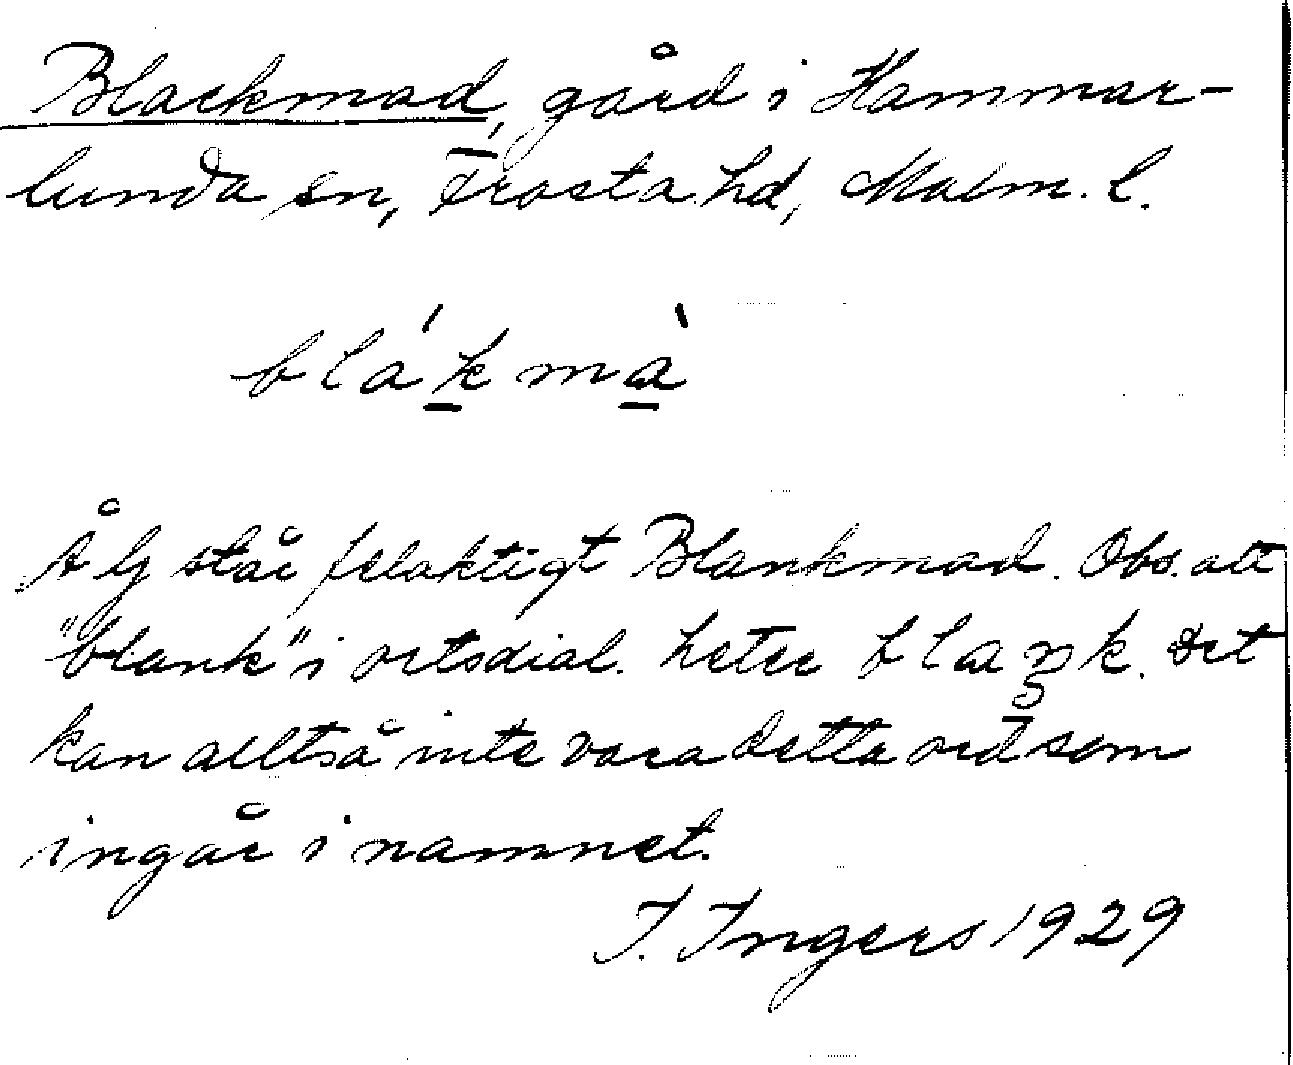 Blackmad, gård i Hammar-
lunda sn, Frosta hd, Malm. l.
bla´kmà
Å lj står felaktigt Blankmad. Obs. att
"blank" i ortsdial. heter blaŋk. Det
kan alltså inte vara detta ord som
ingår i namnet.
I. Ingers 1929